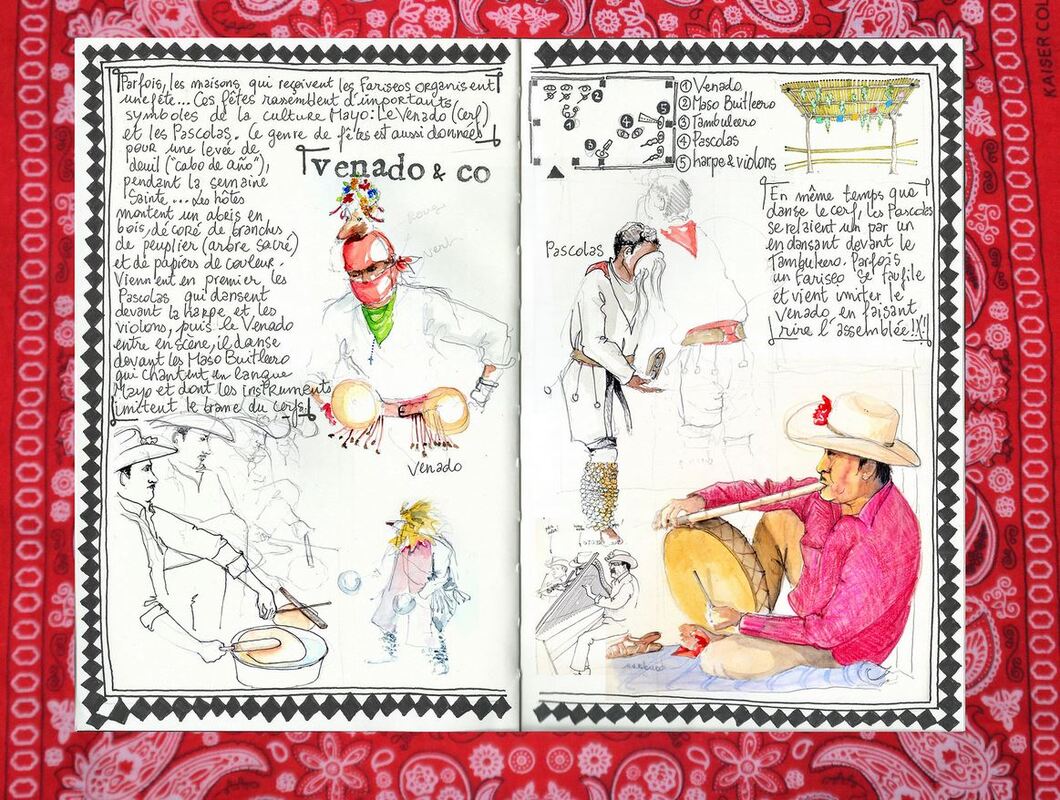 Parfois, les maisons qui reçoivent les Fariseos organisent
une fête... Ces fêtes rassemblent d'importants
symboles de la culture Mayo: Le Venado (Cerf)
et les Pascolas. Ce genre de fêtes est aussi données
pour une levée de
deuil ("cabo de año"),
pendant la semaine
Sainte... Les hôtes
montent un abris en
bois, décoré de branches
de peuplier (arbre sacré)
et de papiers de couleur.
Viennent en premier les
Pascolas qui dansent
devant la harpe et les
violons, puis le Venado
entre en scène, il danse
devant les Maso Buitleero
qui chantent en langue
Mayo et dont les instruments
imitent le brame du cerfs.
venado & co
Rouge
vert
Venado
① Venado
② Maso Buitleero
③ Tambuleero
④ Pascolas
⑤ harpe & violons
2
5
4
3
1
En même temps que
danse le cerf, les Pascolas
se relaient un par un
en dansant devant le
Tambuleero. Parfois
un Fariseo se faufile
et vient imiter le
Venado en faisant
rire l'assemblée!
Pascolas
KAISER COL